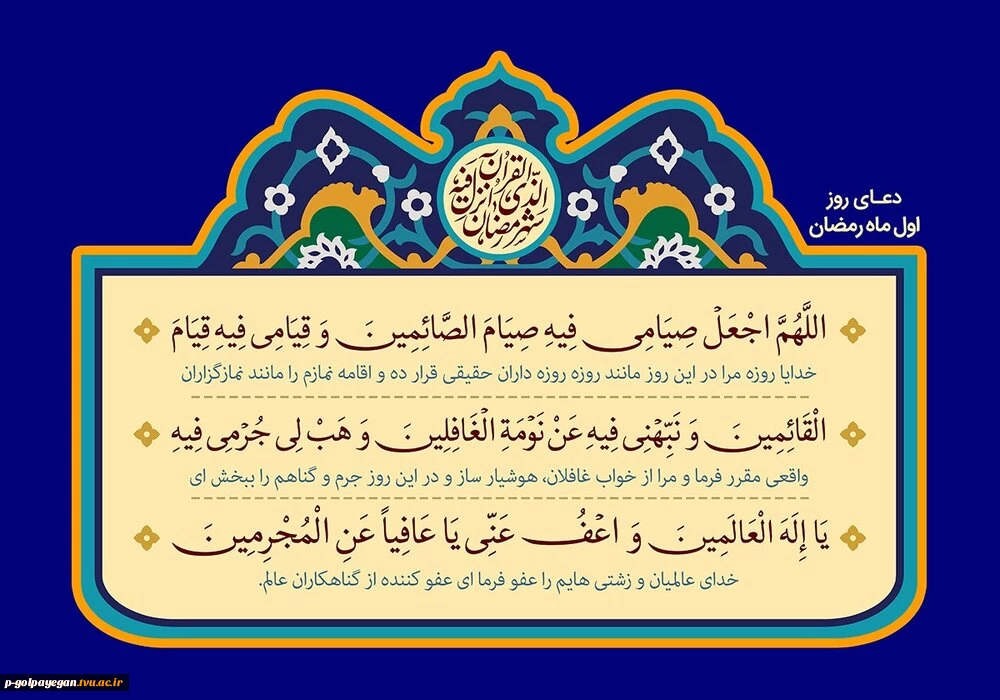 شهر رمضان الذی انزل فیه القرآن
دعای روز
اول ماه رمضان
اللَّهُمَّ اجْعَلْ صِیَامِی فِیهِ صِیَامَ الصَّائِمِینَ وَ قِیَامِی فِیهِ قِیَامَ
خدایا روزه مرا در این روز مانند روزه روزه داران حقیقی قرار ده و اقامه نمازم را مانند نمازگزاران
الْقَائِمِینَ وَ نَبِّهْنِی فِیهِ عَنْ نَوْمَةِ الْغَافِلِینَ وَ هَبْ لِی جُرْمِی فِیهِ
واقعی مقرر فرما و مرا از خواب غافلان، هوشیار ساز و در این روز جرم و گناهم را ببخش ای
یَا إِلَهَ الْعَالَمِینَ وَ اعْفُ عَنِّی یَا عَافِیاً عَنِ الْمُجْرِمِینَ
خدای عالمیان و زشتی هایم را عفو فرما ای عفو کننده از گناهکاران عالم.
p-golpayegan.tvu.ac.ir